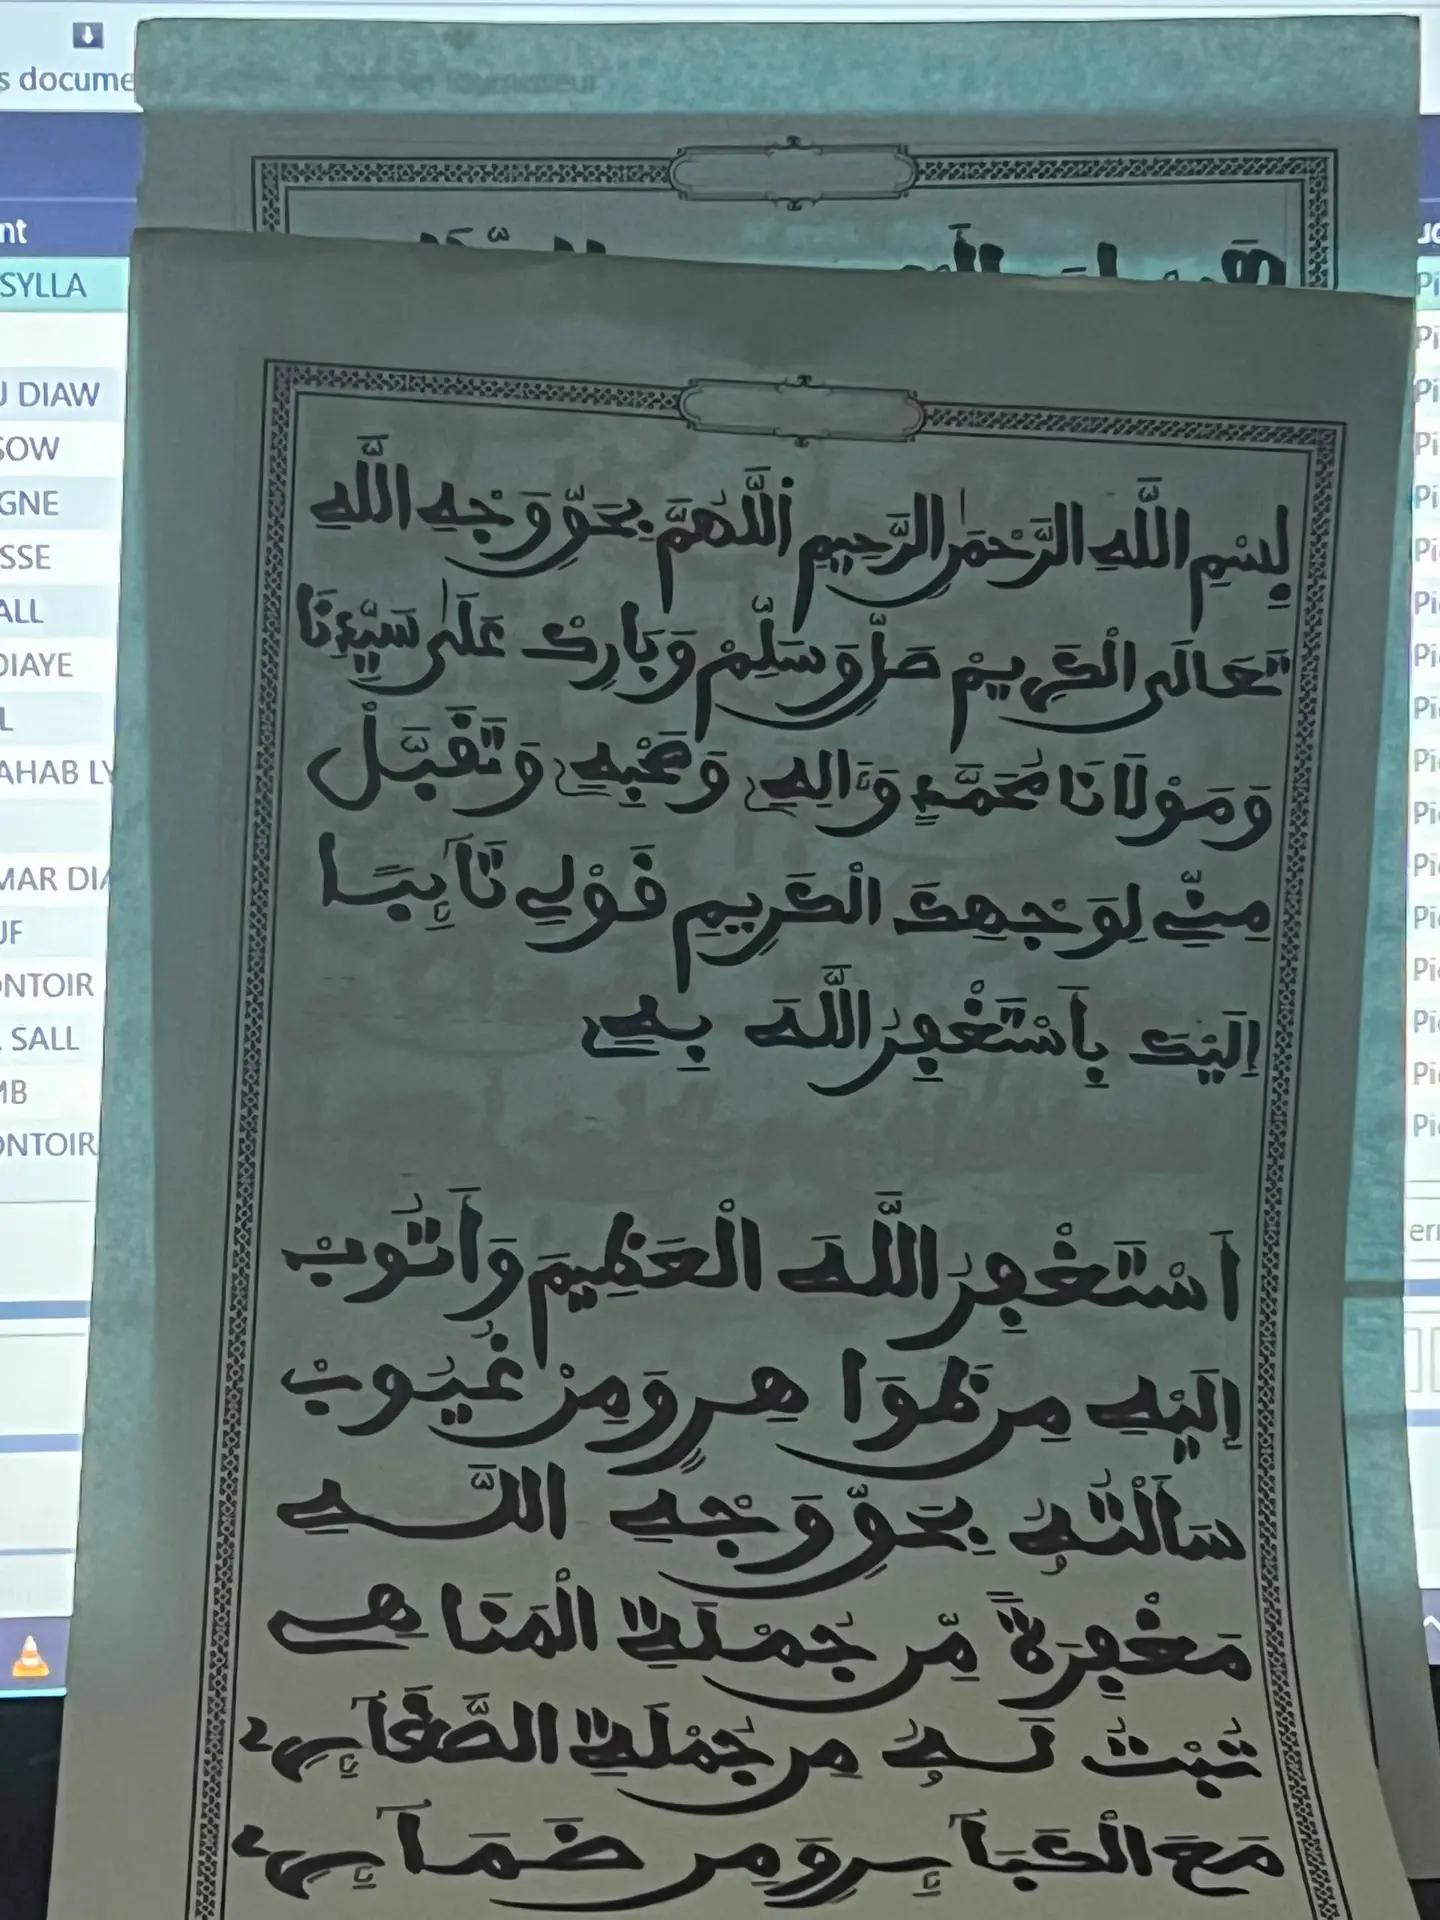 s docume
nt
SYLLA
DIAW
SOW
GNE
SSE
ALL
DIAYE
L
AHAB LY
MAR DIA
UF
ONTOIR
SALL
MB
ONTOIR
بِسْمِ اللَّهِ الرَّحْمَٰنِ الرَّحِيمِ اَللَّهُمَّ بِحَقِّ وَجْهِ اللَّهِ
تَعَالَىٰ الْكَرِيمْ صَلِّ وَسَلِّمْ وَبَارِكْ عَلَىٰ سَيِّدِنَا
وَمَوْلَانَا مُحَمَّدٍ وَءَالِهِ وَصَحْبِهِ وَتَقَبَّلْ
مِنِّي لِوَجْهِكَ الْكَرِيمِ قَوْلِي تَآئِبًا
اِلَيْكَ بِأَسْتَغْفِرُ اللَّهَ بِهِ
اَسْتَغْفِرُ اللَّهَ الْعَظِيمَ وَأَتُوبْ
اِلَيْهِ مِن ظَوَاهِرٍ وَمِنْ غُيُوبْ
سَأَلْتُهُ بِحَقِّ وَجْهِ اللَّهِ
مَغْفِرَةً مِّن جُمْلَةِ الْمَنَاهِي
تُبْتُ لَهُ مِن جُمْلَةِ الصَّغَآئِرِ
مَعَ الْكَبَآئِرِ وَمِن ضَمَآئِرِ